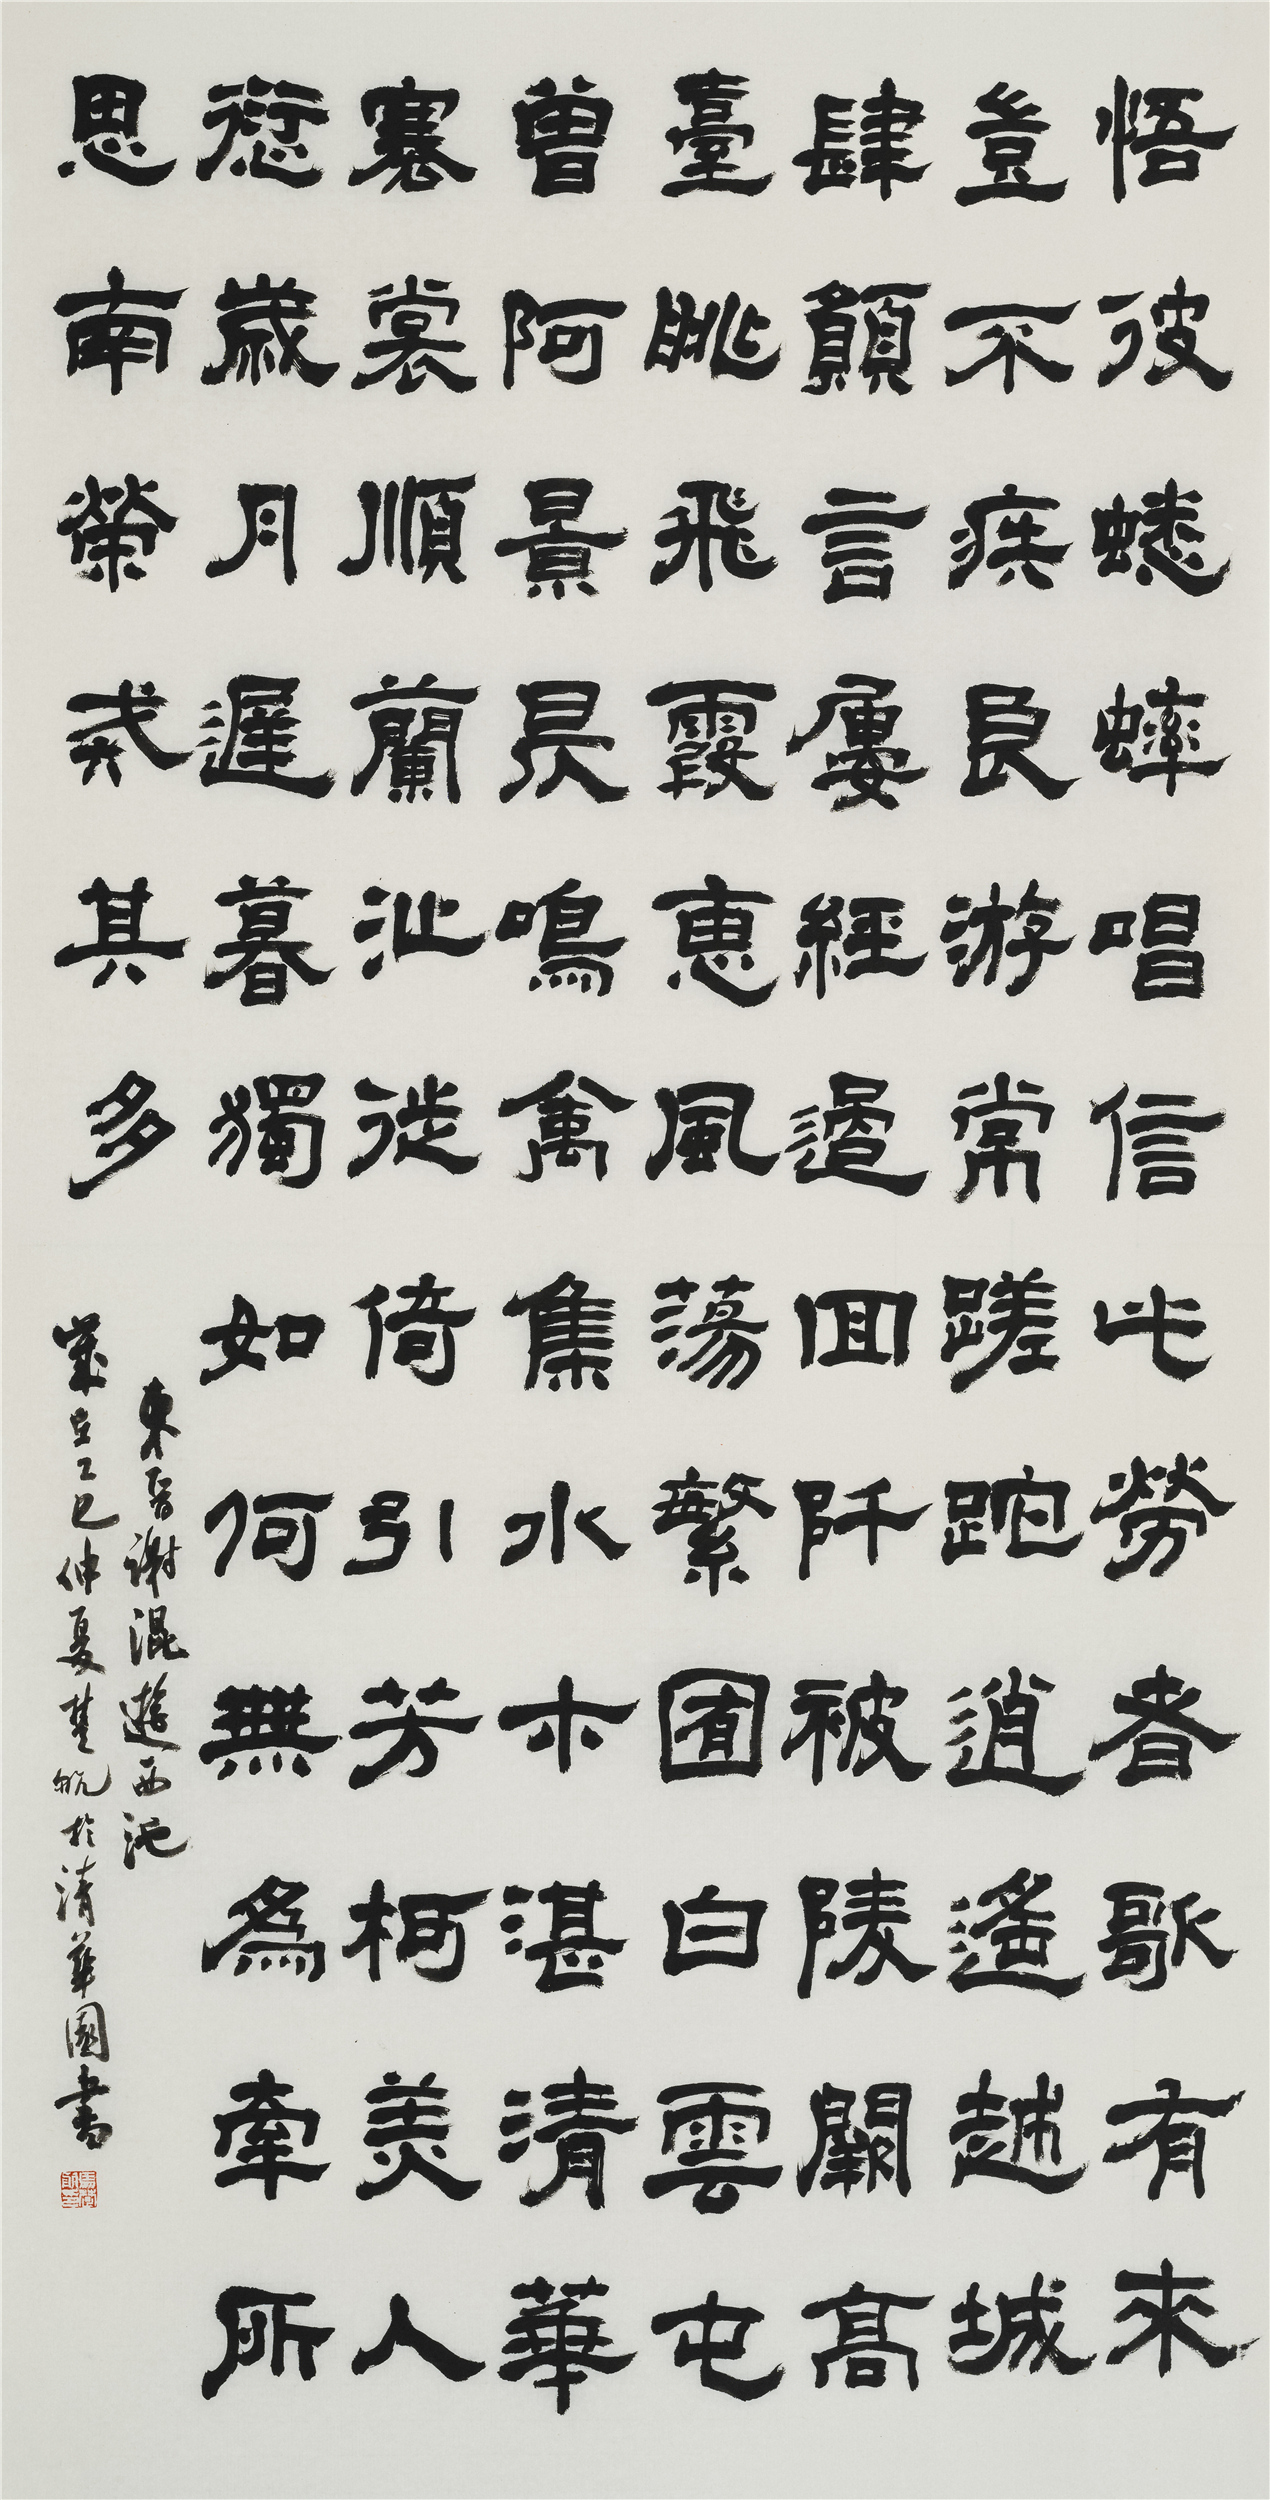 悟彼蟋蟀唱信此勞者歌有來
豈不疾良游常蹉跎逍遙越城
肆願言屢經過回阡被陵闕高
臺眺飛霞惠風蕩繁囿白雲屯
曾阿景昃鳴禽集水木湛清華
褰裳順蘭沚徙倚引芳柯美人
愆歲月遲暮獨如何無為牽所
思南榮戒其多
東晉謝混遊西池
歲在乙巳仲夏楚帆於清華園書